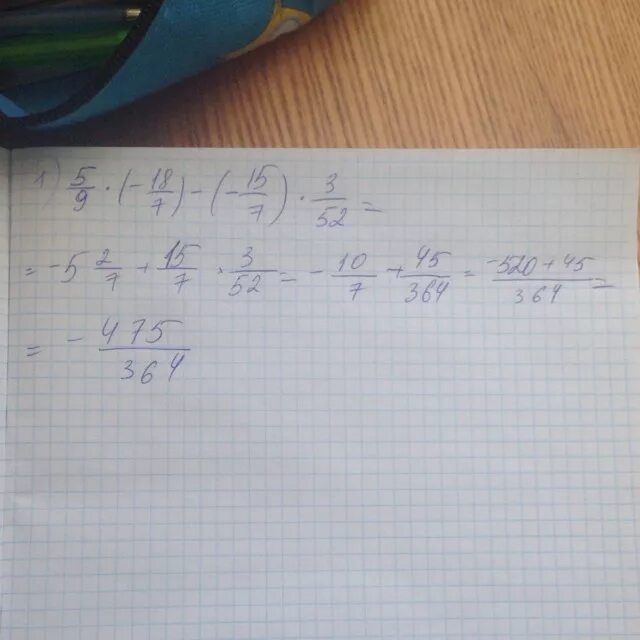 1) 5/9 · (-18/7) - (-15/7) · 3/52 =
= -5 2/7 + 15/7 · 3/52 = -10/7 + 45/364 = -520+45/364 =
= -475/364